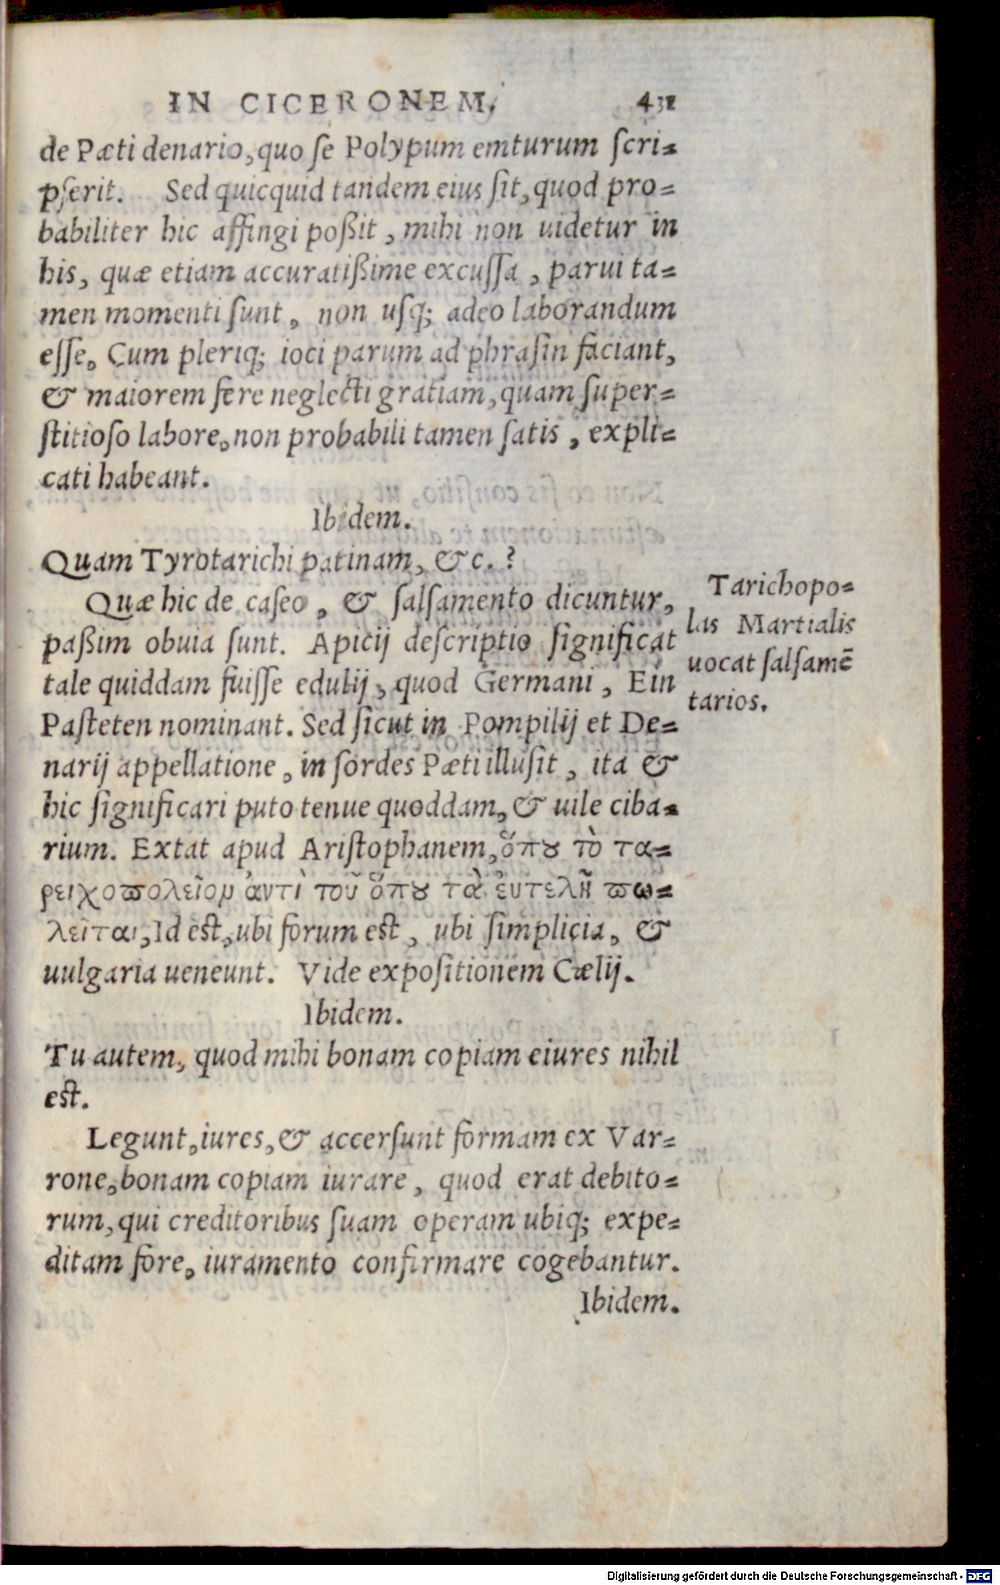 IN CICERONEM. 431
de Pæti denario, quo ſe Polypum emturum ſcri-
pſerit. Sed quicquid tandem eius ſit, quod pro-
babiliter hic affingi poßit, mihi non uidetur in
his, quæ etiam accuratißime excuſſa, parui ta-
men momenti ſunt, non uſq; adeo laborandum
eſſe. Cum pleriq; ioci parum ad phraſin faciant,
& maiorem fere neglecti gratiam, quam ſuper-
ſtitioſo labore, non probabili tamen ſatis, expli-
cati habeant.
Ibidem.
Quam Tyrotarichi patinam, &c.?
Quæ hic de caſeo, & ſalſamento dicuntur,
paßim obuia ſunt. Apicij deſcriptio ſignificat
tale quiddam fuiſſe edulij, quod Germani, Ein
Paſteten nominant. Sed ſicut in Pompilij et De-
narij appellatione, in ſordes Pæti illuſit, ita &
hic ſignificari puto tenue quoddam, & uile ciba-
rium. Extat apud Ariſtophanem, ὅπȣ τὸ τα-
ρειχοϖολεῖον ἀντὶ τοῦ ὅπȣ τὰ ἐυτελῆ ϖω-
λεῖται, Id eſt, ubi forum eſt, ubi ſimplicia, &
uulgaria ueneunt. Vide expoſitionem Cælij.
Ibidem.
Tu autem, quod mihi bonam copiam eiures nihil
eſt.
Legunt, iures, & accerſunt formam ex Var-
rone, bonam copiam iurare, quod erat debito-
rum, qui creditoribus ſuam operam ubiq; expe-
ditam fore, iuramento confirmare cogebantur.
Ibidem.
Tarichopo-
las Martialis
uocat ſalſamē
tarios.
Digitalisierung gefördert durch die Deutsche Forschungsgemeinschaft - DFG